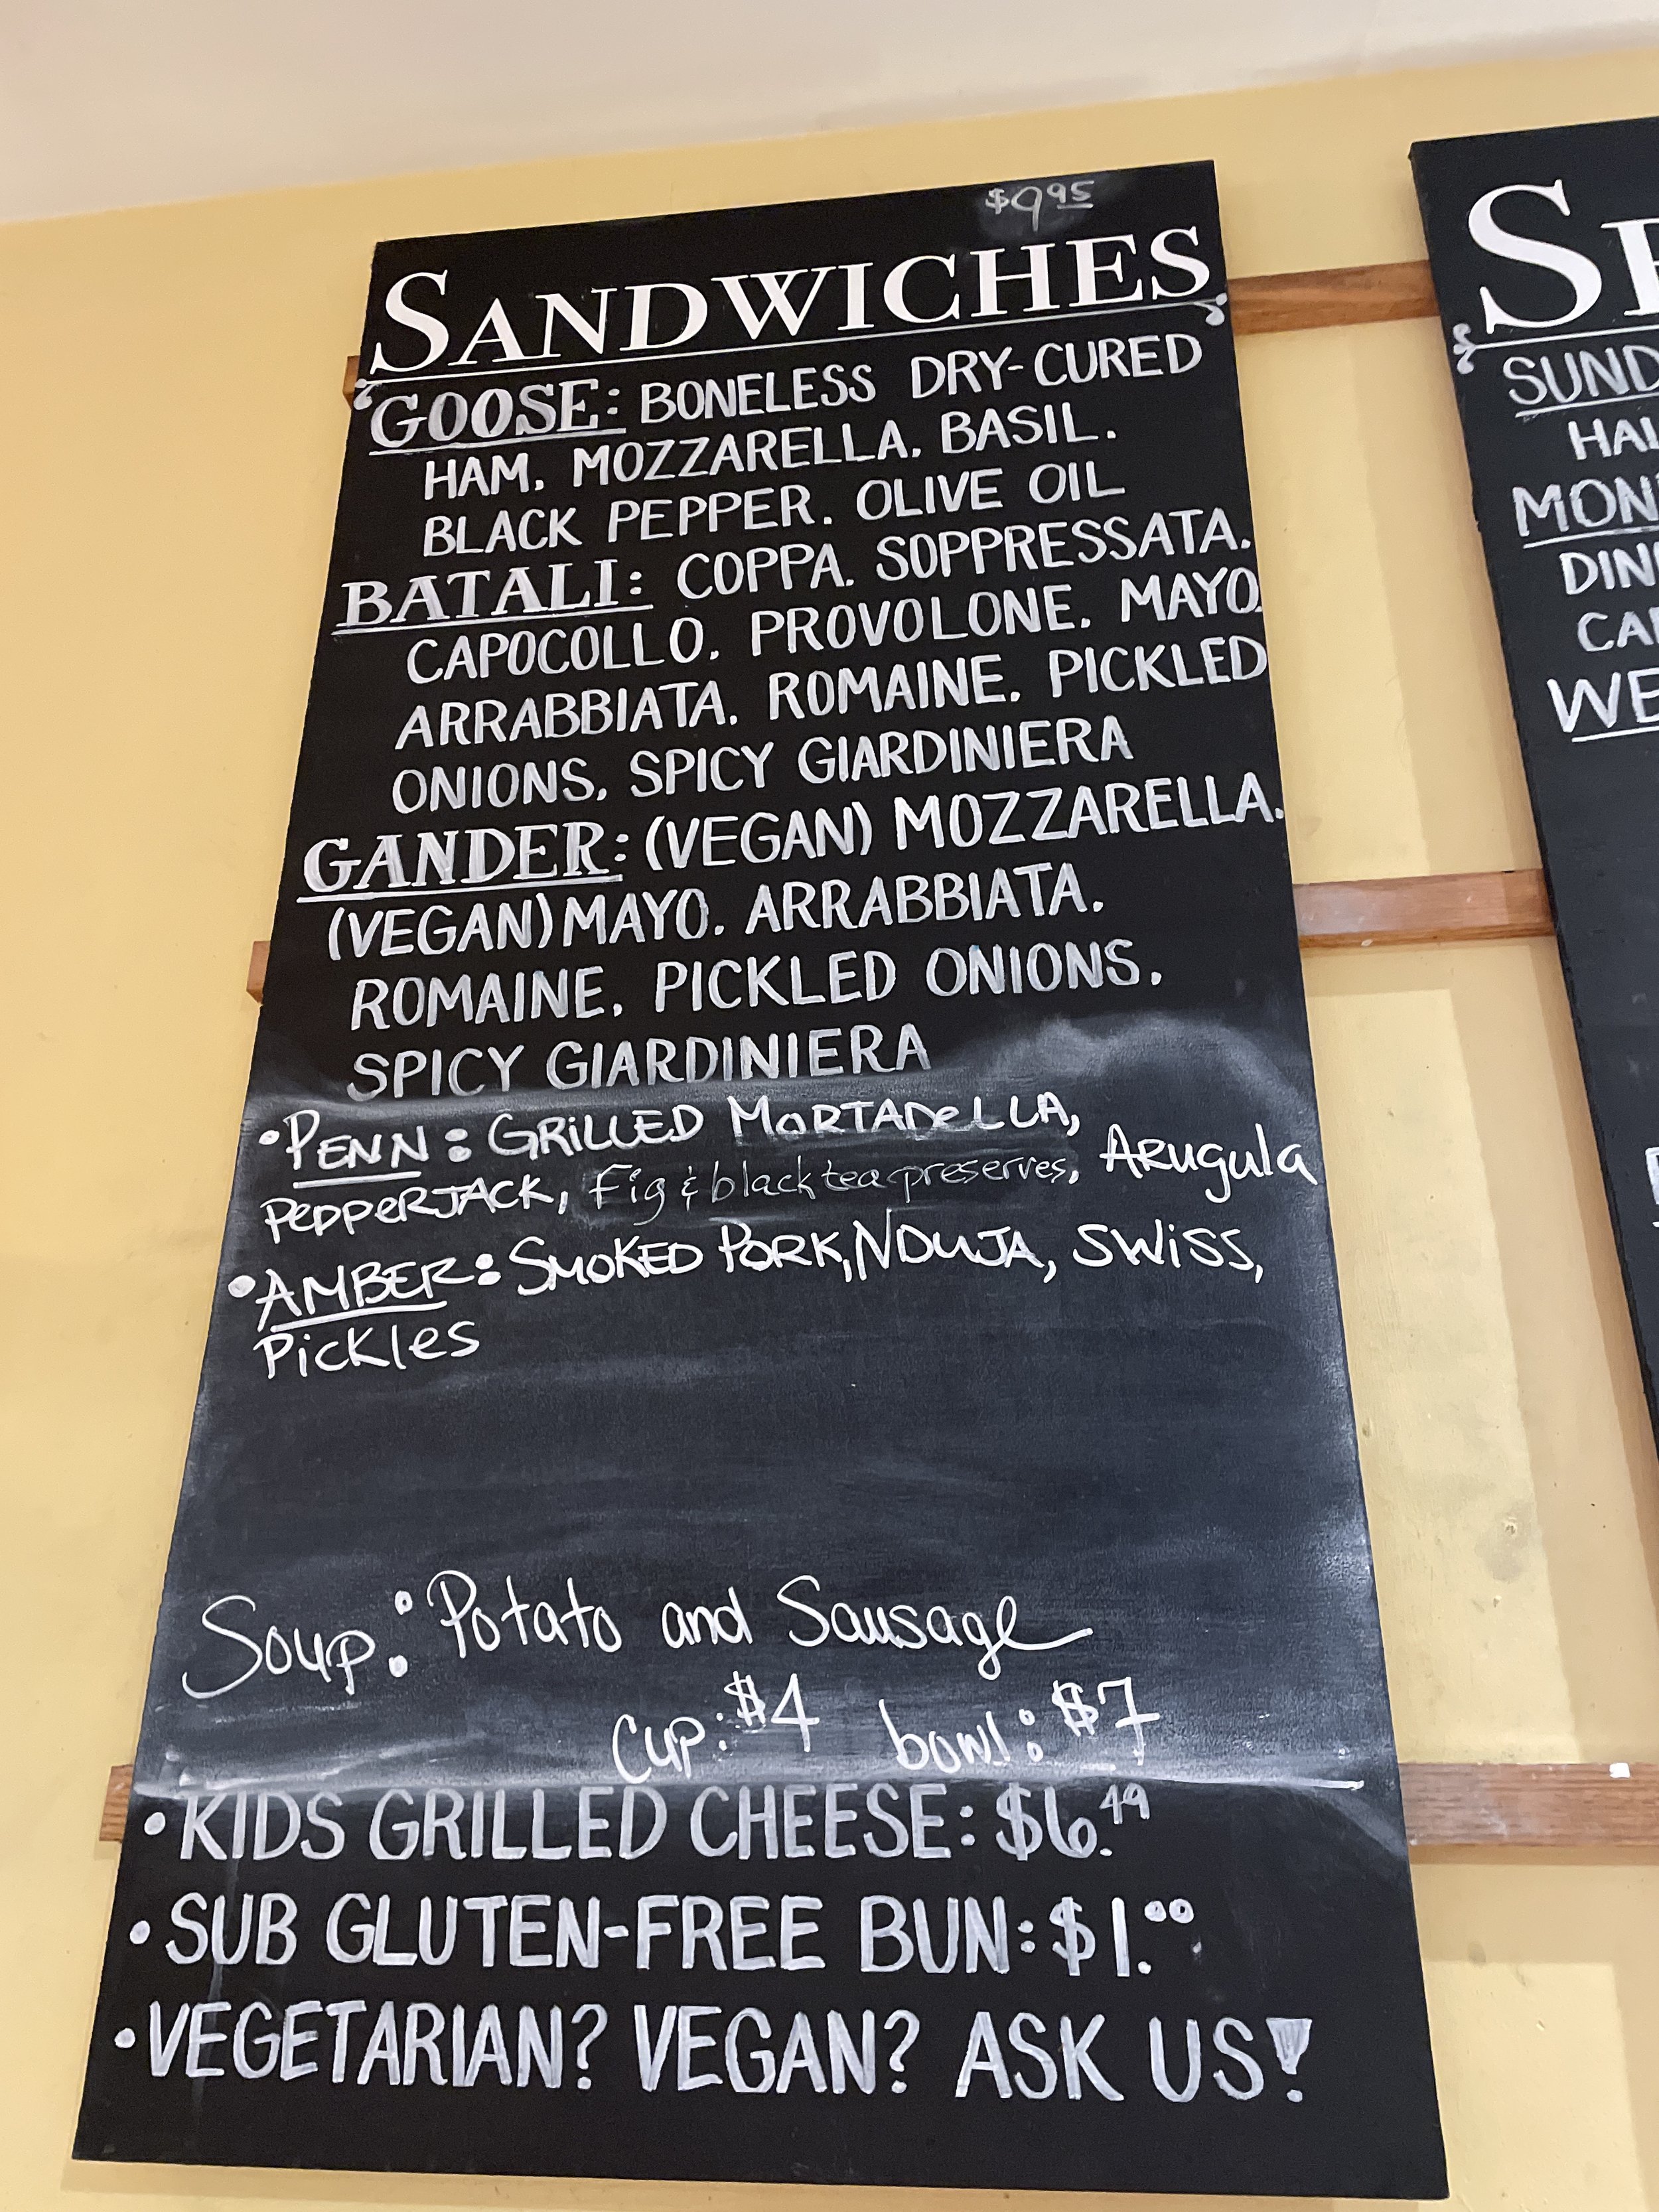 $9.95
SANDWICHES
GOOSE: BONELESS DRY-CURED
HAM. MOZZARELLA. BASIL.
BLACK PEPPER. OLIVE OIL
BATALI: COPPA. SOPPRESSATA.
CAPOCOLLO. PROVOLONE. MAYO.
ARRABBIATA. ROMAINE. PICKLED
ONIONS. SPICY GIARDINIERA
GANDER: (VEGAN) MOZZARELLA.
(VEGAN) MAYO. ARRABBIATA.
ROMAINE. PICKLED ONIONS.
SPICY GIARDINIERA
•PENN: GRILLED MORTADELLA,
PEPPERJACK, Fig & black tea preserves, Arugula
•AMBER: SMOKED PORK, NDUJA, SWISS,
Pickles
Soup: Potato and Sausage
cup: $4 bowl: $7
•KIDS GRILLED CHEESE: $6.49
•SUB GLUTEN-FREE BUN: $1.00
•VEGETARIAN? VEGAN? ASK US!